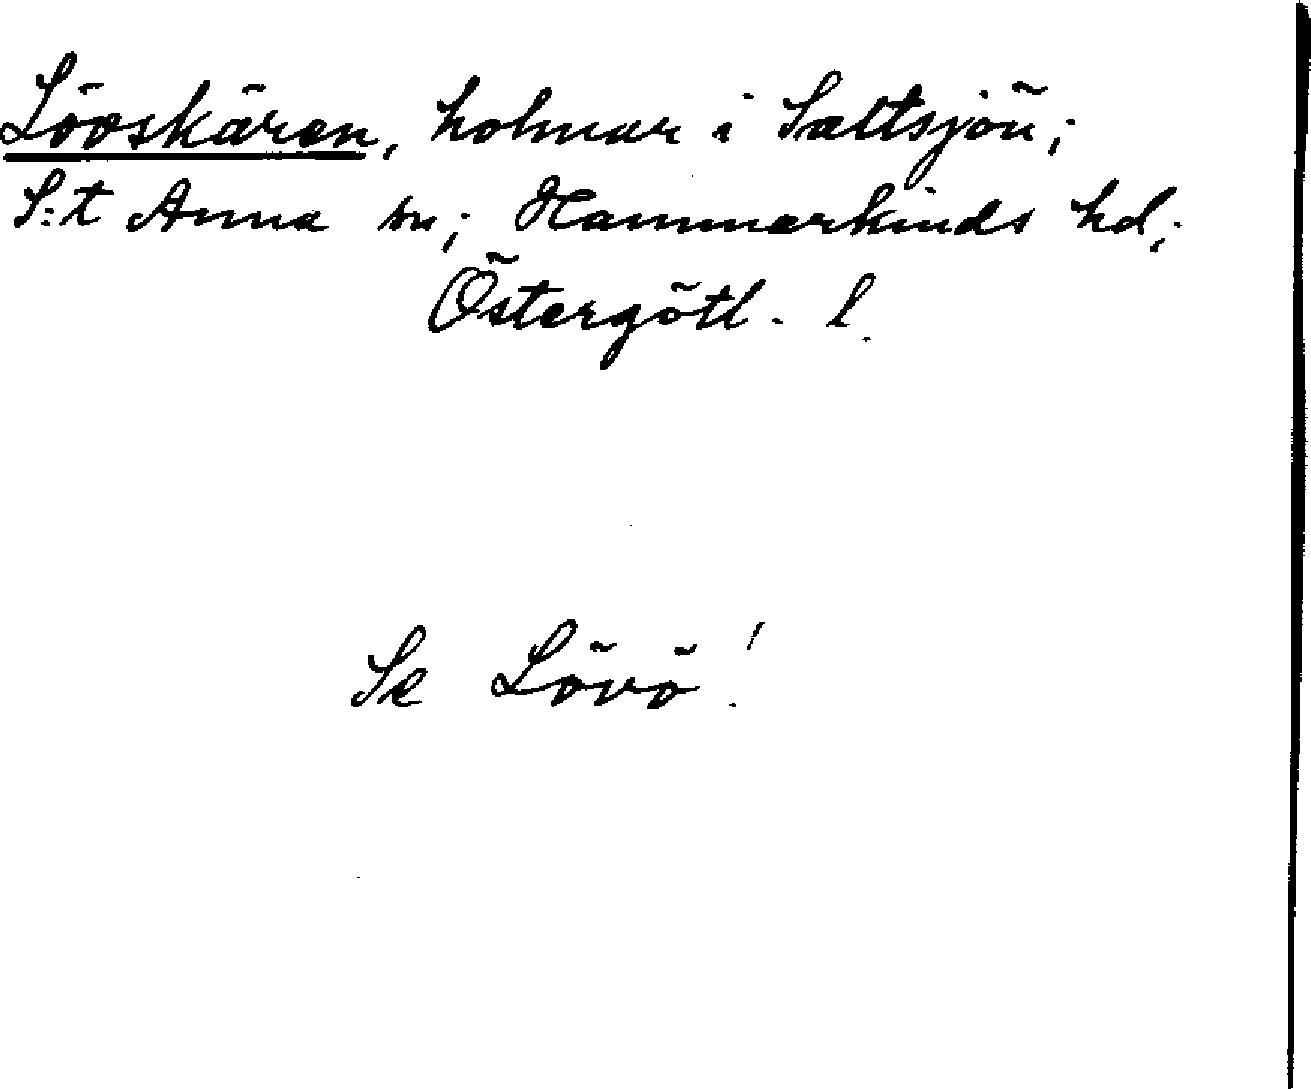 Lövskären, holmar i Saltsjön;
S:t Anna sn; Hammarkinds hd;
Östergötl. l.
Se Lövö!